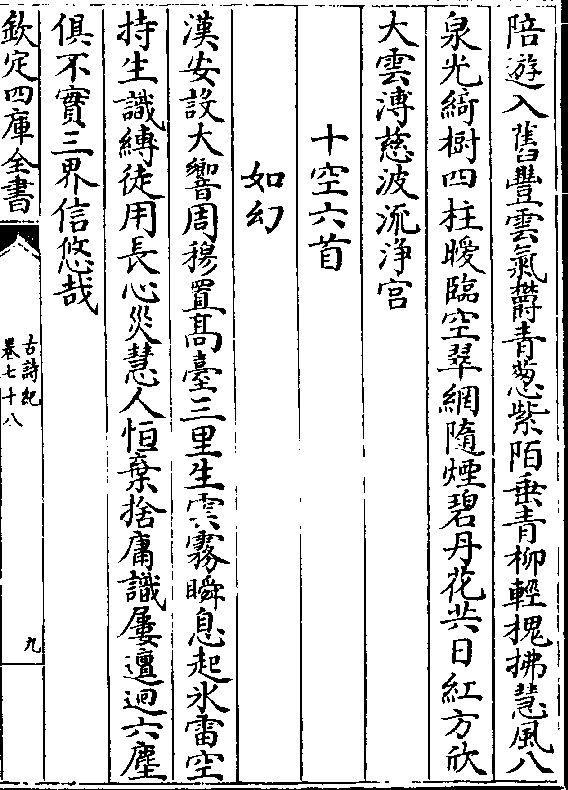 陪遊入舊豐雲氣欝青葱紫陌垂青柳輕槐拂慧風八
泉光綺樹四柱曖臨空翠網隨煙碧丹花共日紅方欣
大雲溥慈波流浄宮
十空六首
如幻
漢安設大響周穆置髙臺三里生雲霧瞬息起氷雷空
持生識縛徒用長心災慧人恒棄捨庸識屢邅迴六塵
俱不實三界信悠哉
欽定四庫全書
古詩紀
卷七十八
九